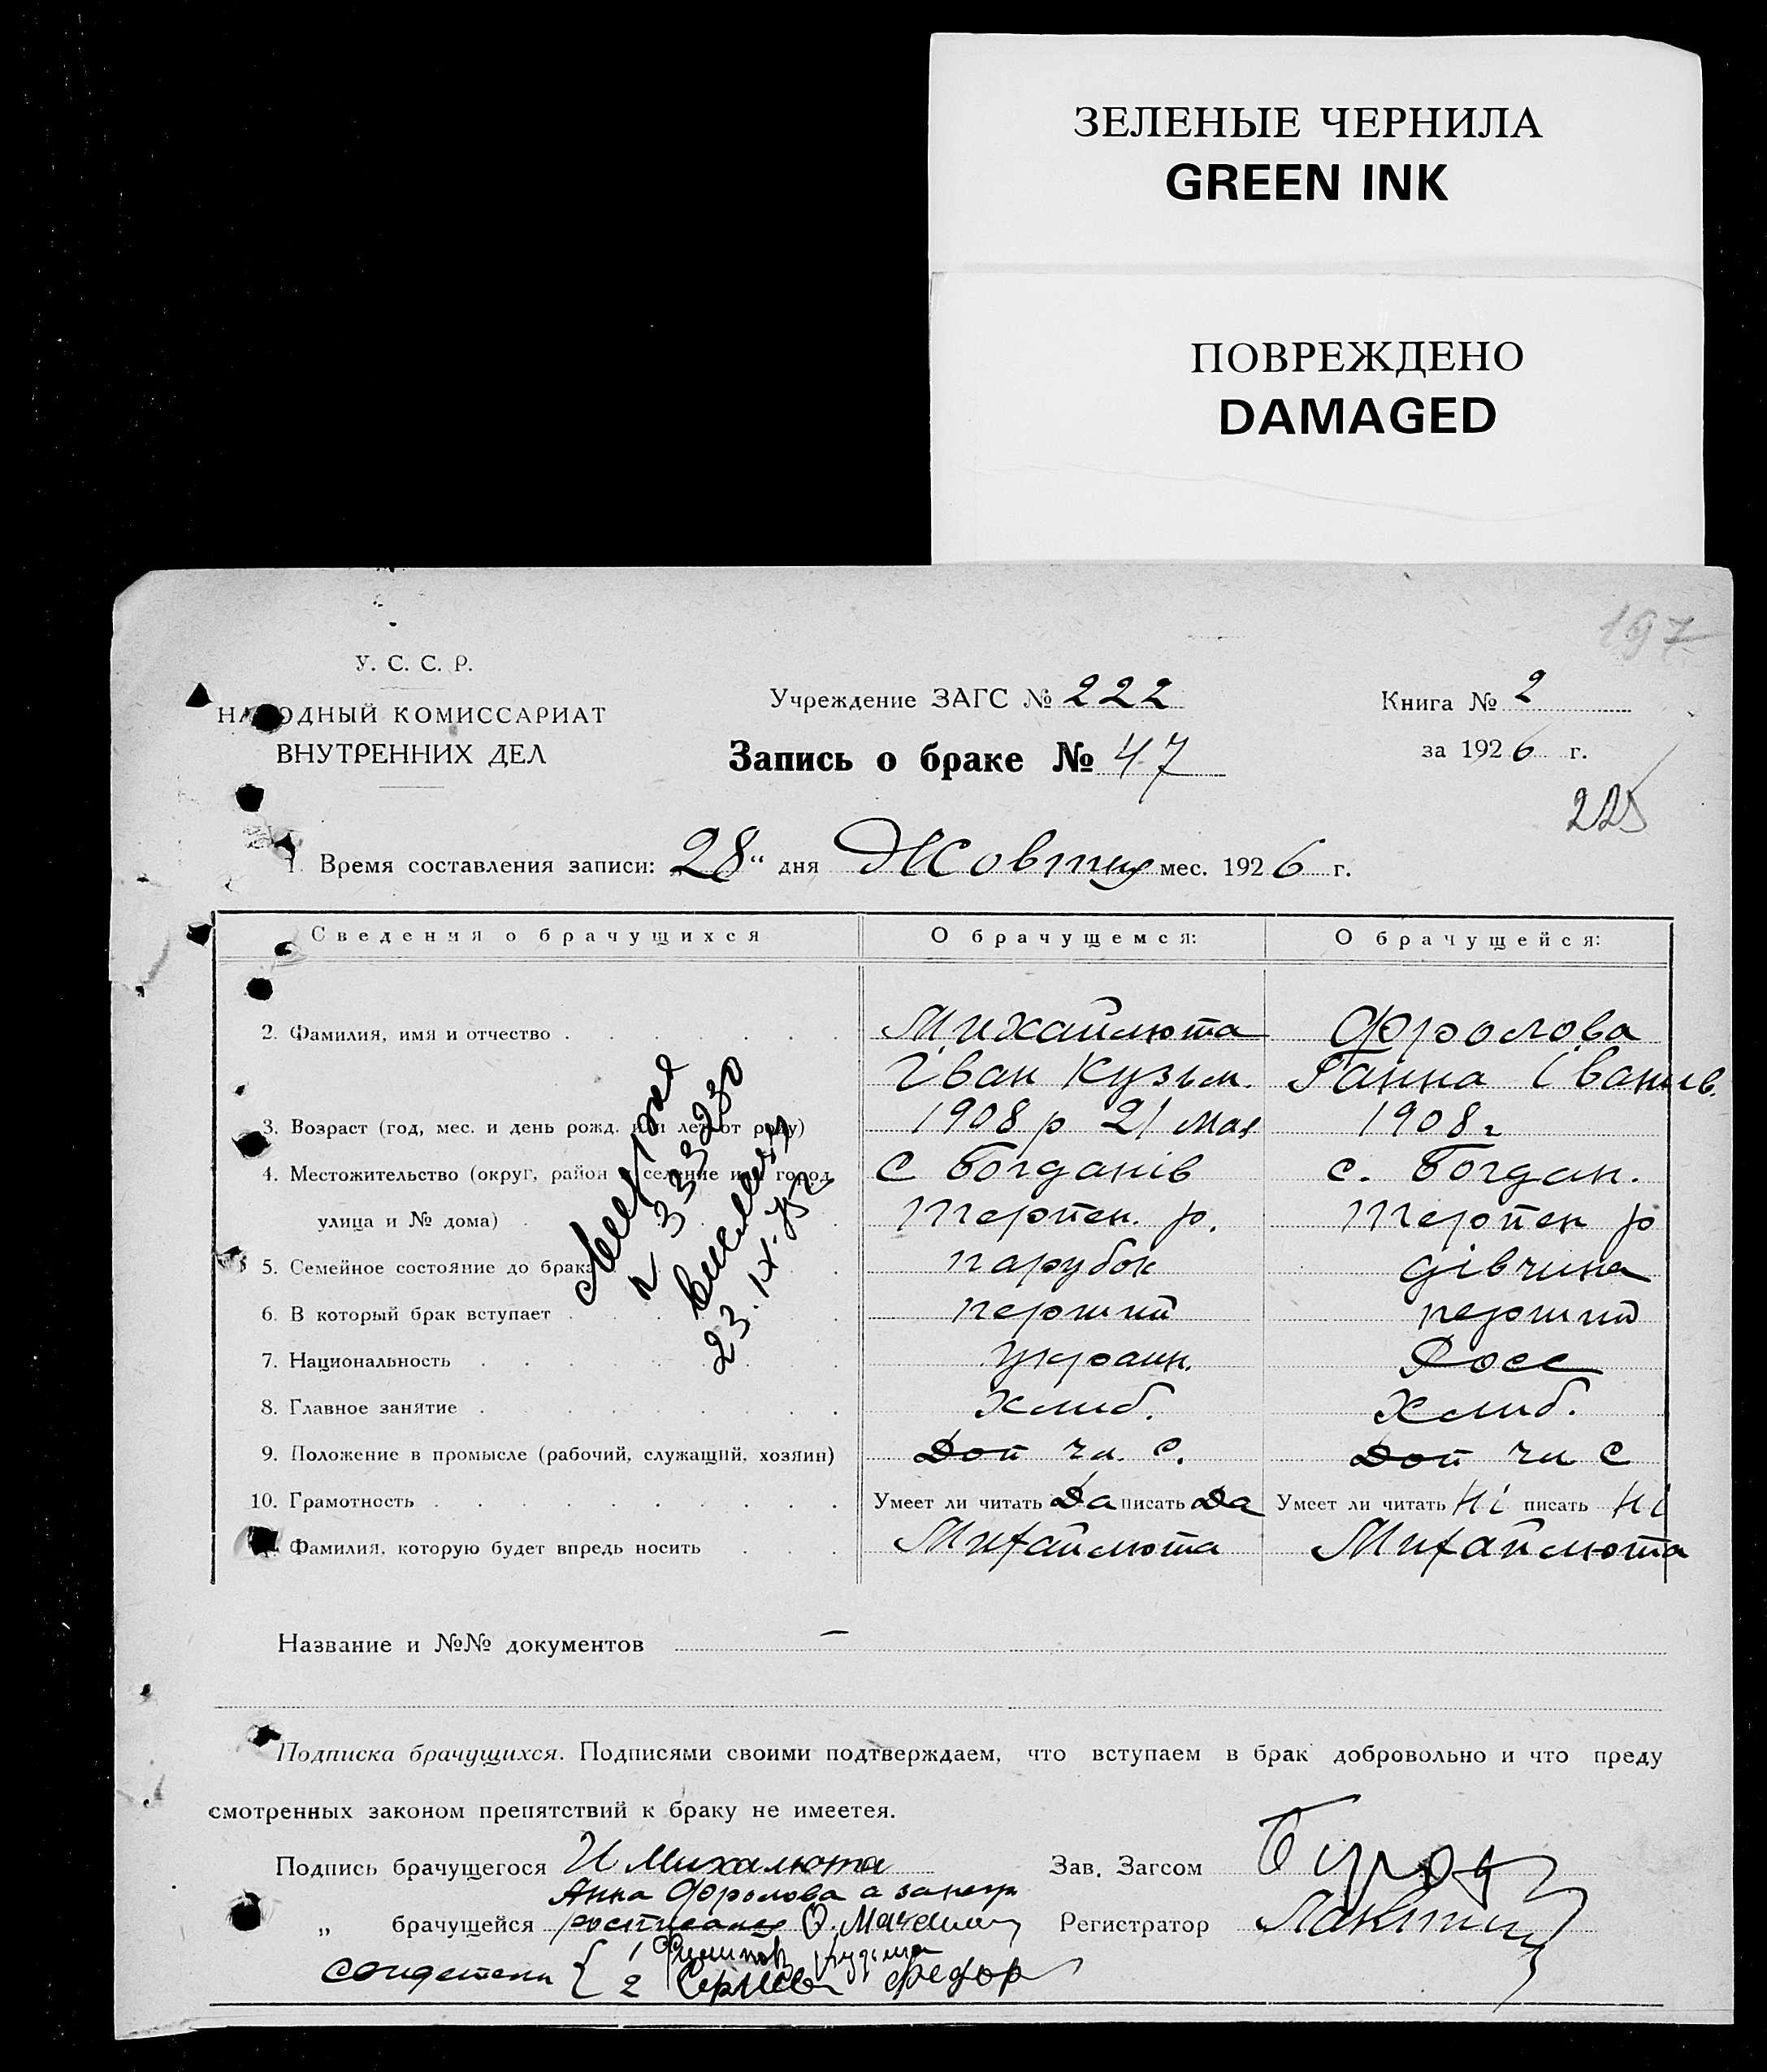 ЗЕЛЕНЫЕ ЧЕРНИЛА
GREEN INK
ПОВРЕЖДЕНО
DAMAGED
197
У. С. С. Р.
НАРОДНЫЙ КОМИССАРИАТ
ВНУТРЕННИХ ДЕЛ
Учреждение ЗАГС № 222
Книга № 2
Запись о браке № 47
за 1926 г.
225
1. Время составления записи: 28 " дня Жовтня мес. 1926 г.
Сведения о брачущихся О брачущемся: О брачущейся:
2. Фамилия, имя и отчество Михайлюта Фролова
Іван Кузьм. Ганна Іванив.
3. Возраст (год, мес. и день рожд. или лет от роду) 1908 р 21 мая 1908 г
4. Местожительство (округ, район и селение или город, с Богданів с. Богдан.
улица и № дома) Терпен. р. Терпен р
5. Семейное состояние до брака парубок дівчина
6. В который брак вступает перший перший
7. Национальность Украин. Росс
8. Главное занятие Хлиб. Хлиб.
9. Положение в промысле (рабочий, служащий, хозяин) Доп чл. с. Доп чл с
10. Грамотность Умеет ли читать Да писать Да Умеет ли читать Ні писать Ні
Фамилия, которую будет впредь носить Михайлюта Михайлюта
333230
23. IX.
Название и №№ документов —
Подписка брачущихся. Подписями своими подтверждаем, что вступаем в брак добровольно и что преду
смотренных законом препятствий к браку не имеетея.
Подпись брачущегося И Михалюта Зав. Загсом
Анна Фролова а за негр
„ брачущейся Регистратор
1
2 Сергеев Федор